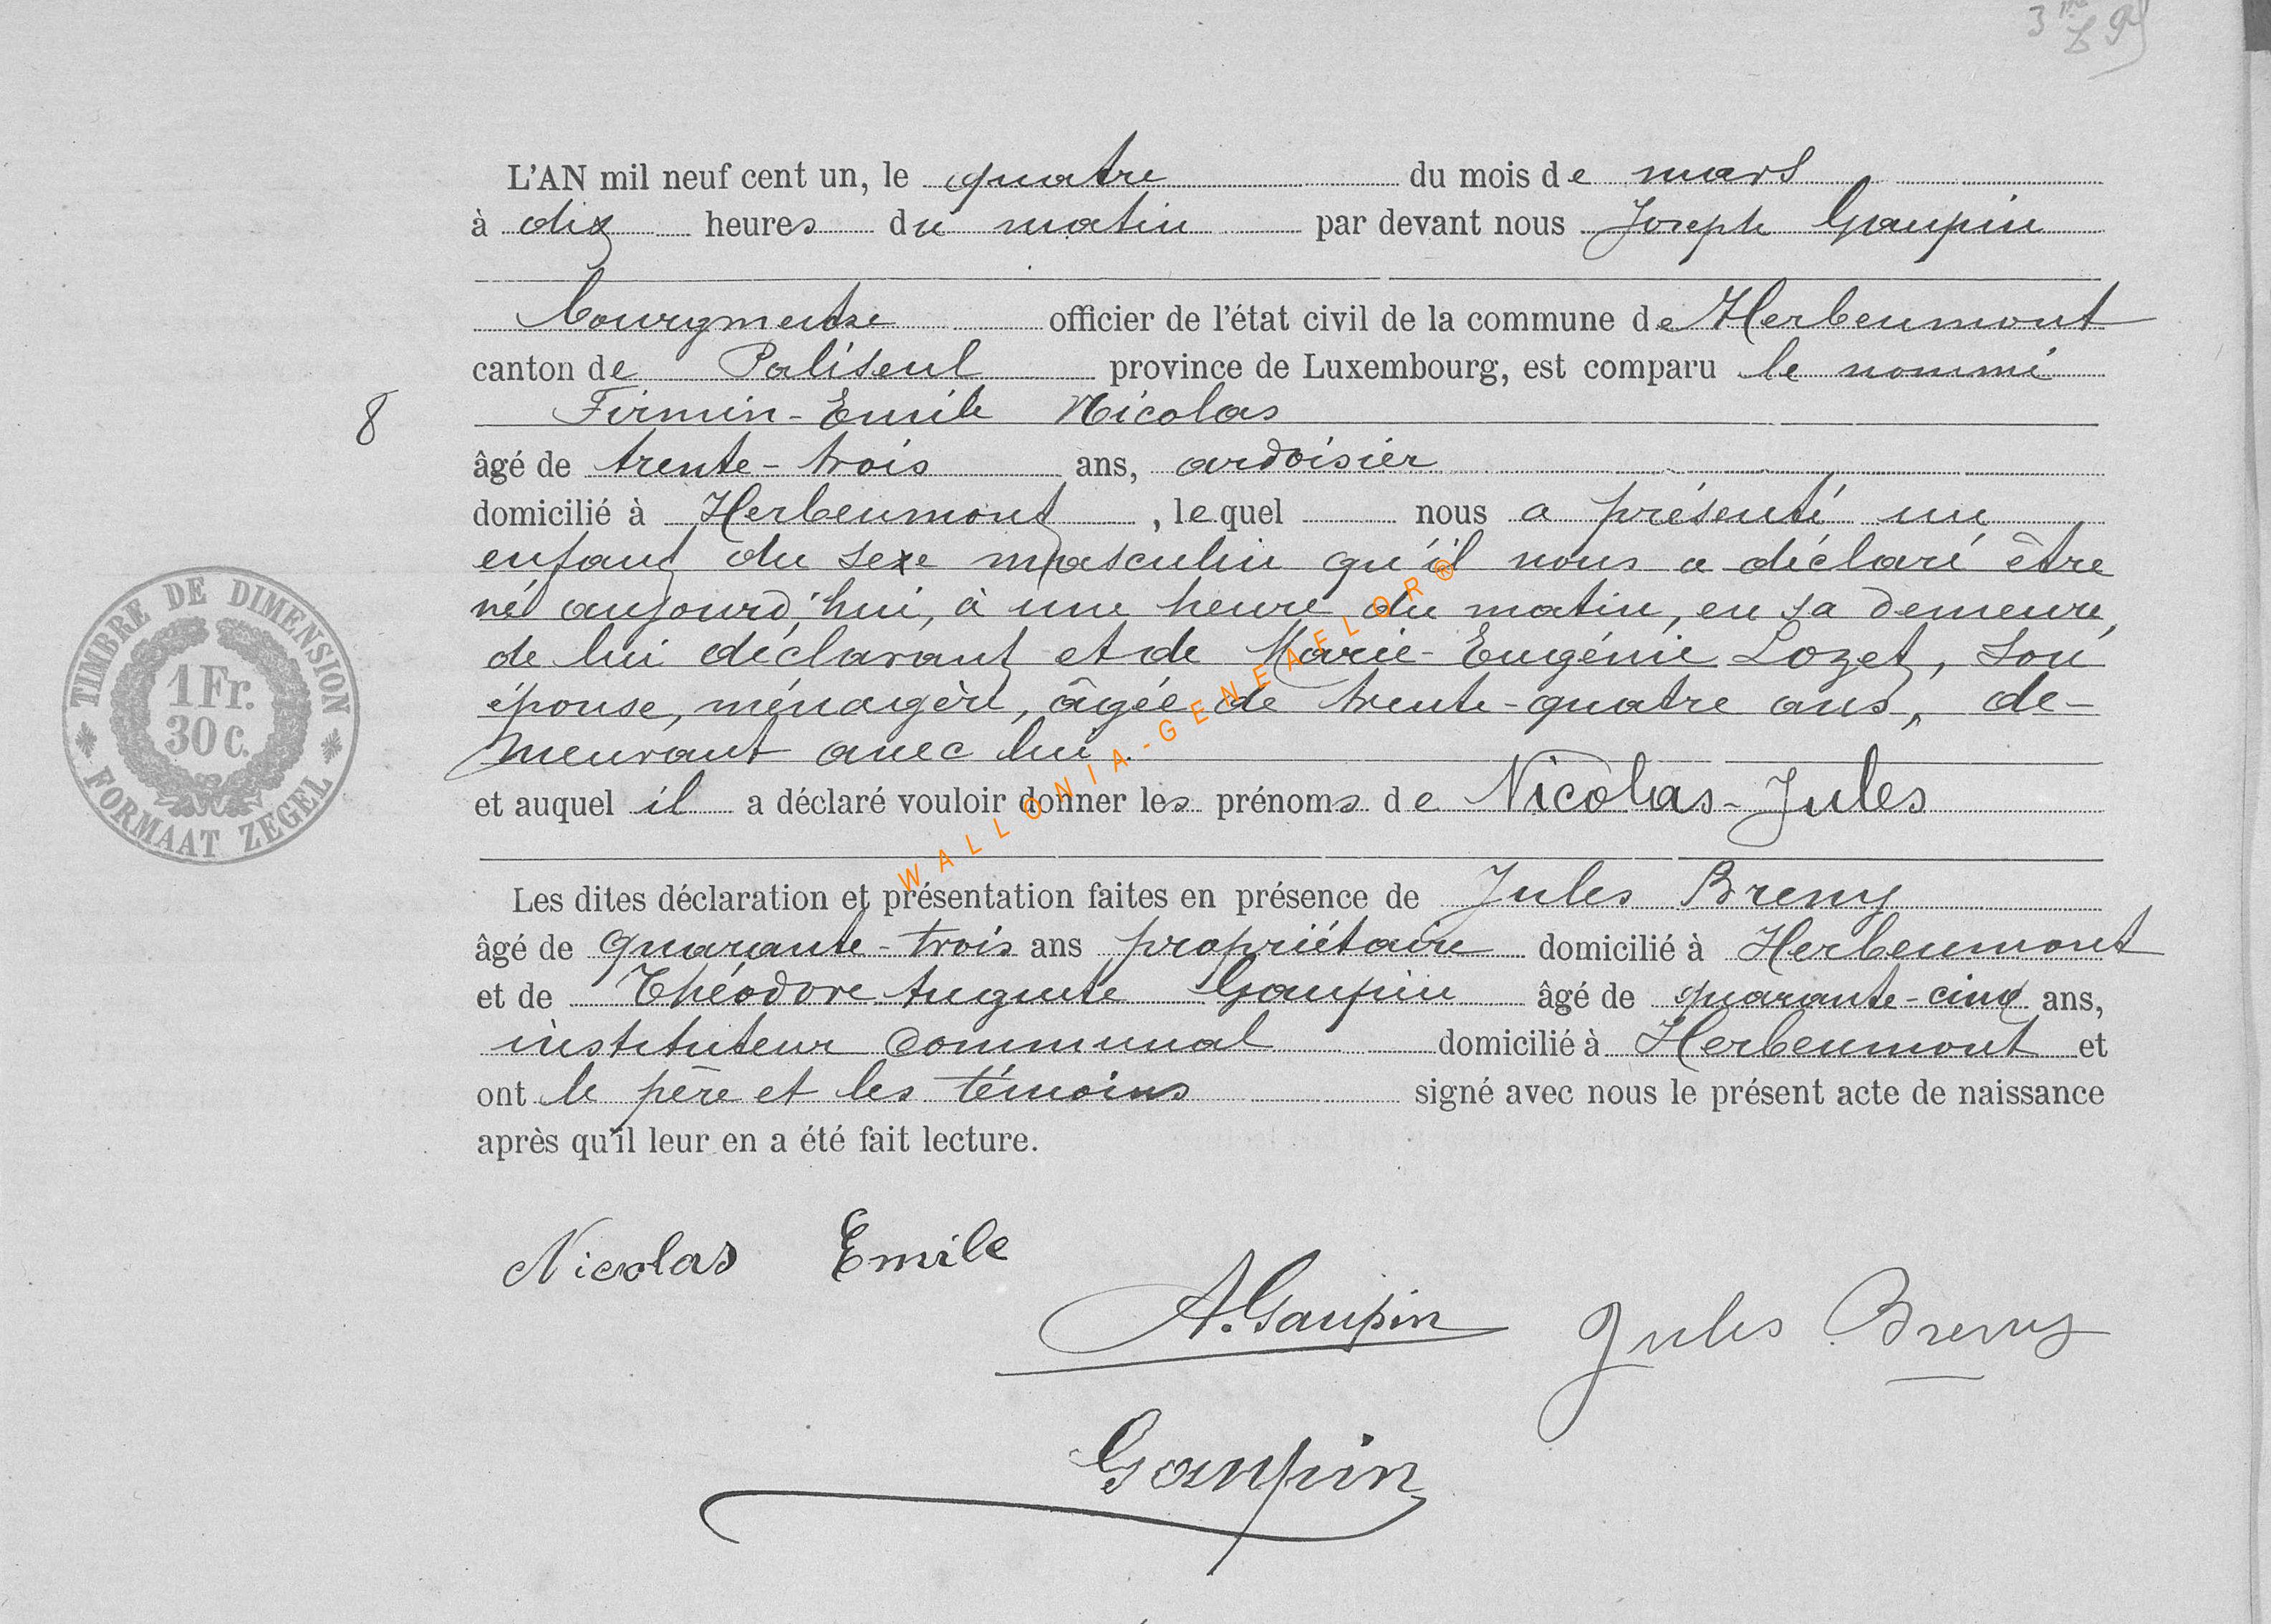 3me
L'AN mil neuf cent un, le quatre du mois de mars
à dix heures du matin par devant nous Joseph Gaupin
bourgmestre officier de l'état civil de la commune de Herbeumont
canton de Paliseul province de Luxembourg, est comparu le nommé
8 Firmin-Emile Nicolas
âgé de trente-trois ans, ardoisier
domicilié à Herbeumont, lequel nous a présenté un
enfant du sexe masculin qu'il nous a déclaré être
né aujourd'hui, à une heure du matin, en sa demeure,
de lui déclarant et de Marie-Eugénie Lozet, son
épouse, ménagère, âgée de trente-quatre ans, de-
meurant avec lui.
et auquel il a déclaré vouloir donner les prénoms de Nicolas-Jules
Les dites déclaration et présentation faites en présence de Jules Bremy
âgé de quarante-trois ans propriétaire domicilié à Herbeumont
et de Théodore Auguste Gaupin âgé de quarante-cinq ans,
instituteur communal domicilié à Herbeumont et
ont le père et les témoins signé avec nous le présent acte de naissance
après qu'il leur en a été fait lecture.
Nicolas Emile
A. Gaupin Jules Bremy
Gaupin
TIMBRE DE DIMENSION
1 Fr.
30 c.
FORMAAT ZEGEL
WALLONIA-GENEAFLOR®